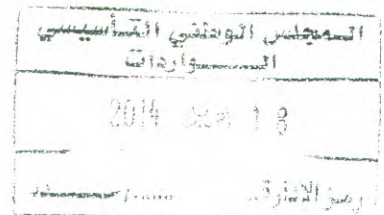 المجلس الوطني التأسيسي
الـــــــواردات
1 8 ... 2014
رمز الإدارة